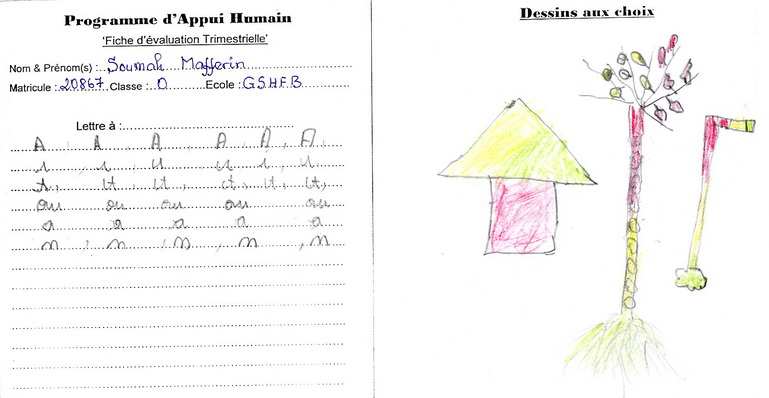 Programme d'Appui Humain
'Fiche d'évaluation Trimestrielle'
Nom & Prénom(s) : Soumah Mafferin
Matricule : 20867 Classe : O Ecole : GSHFB
Lettre à :
A A A A A A
u u u
ou ou ou ou ou
a a a a a
m m m m m
Dessins aux choix